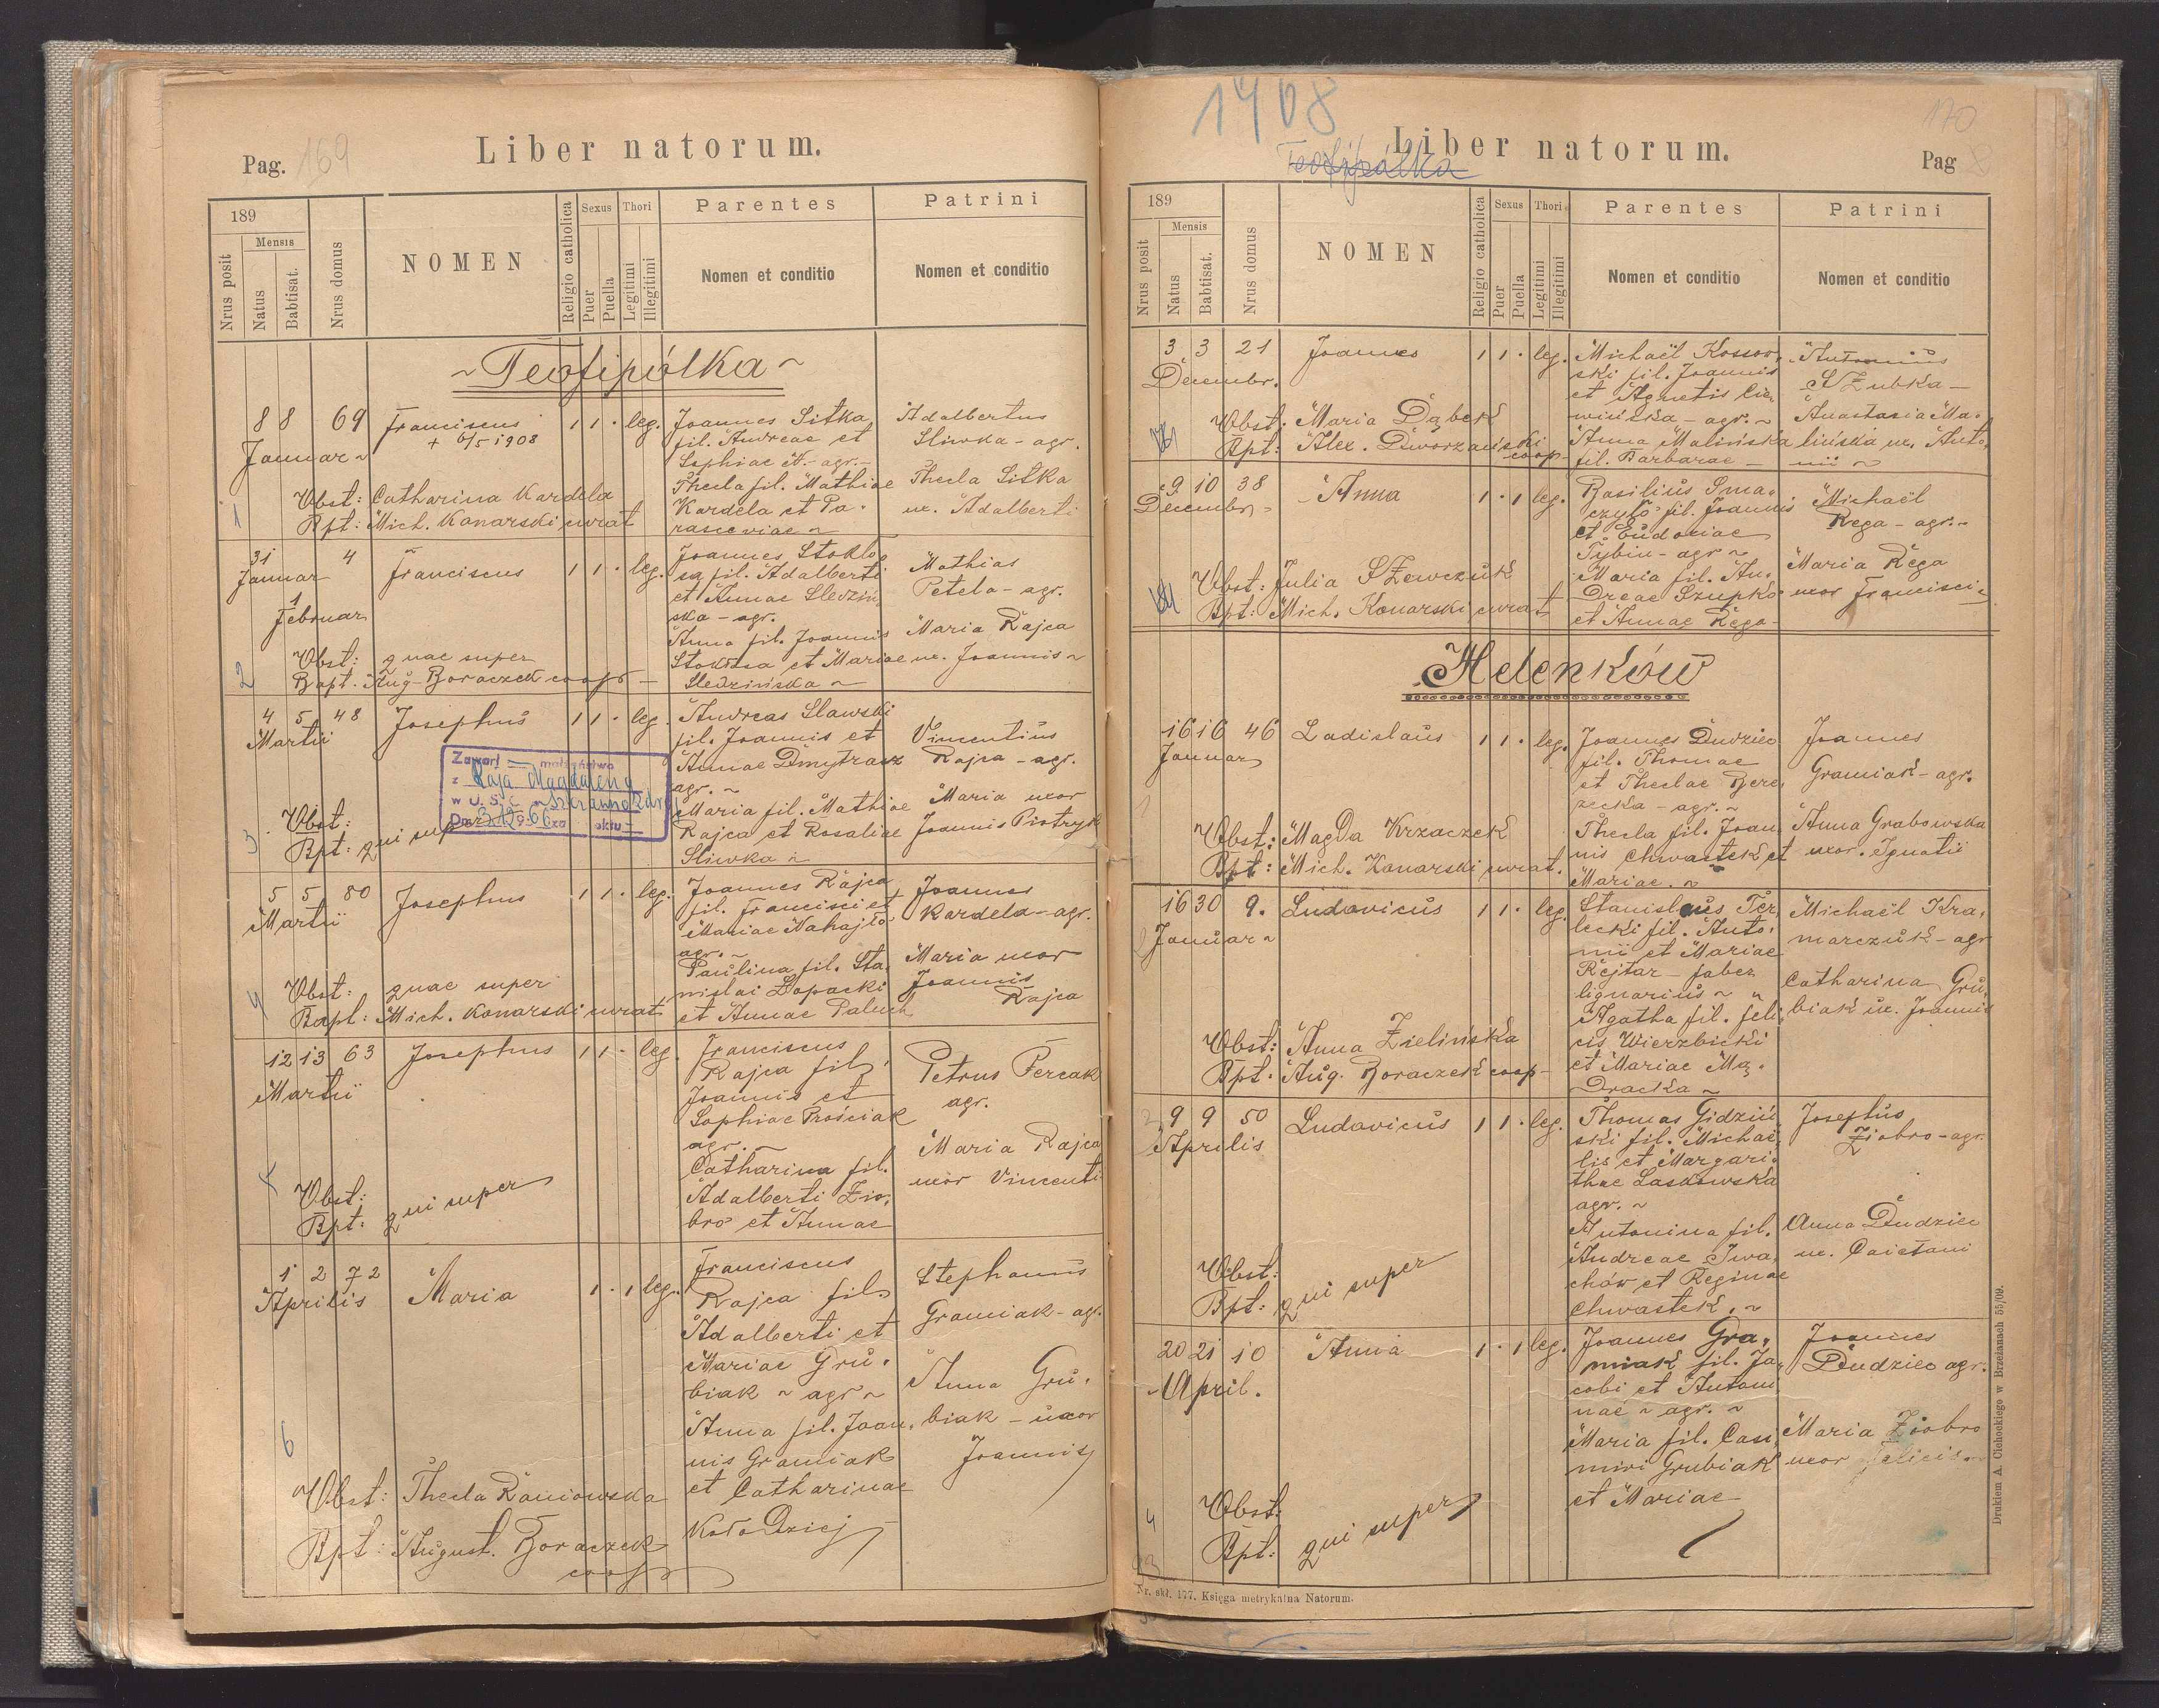 Pag. 169
Liber natorum.
189
Nrus posit
Mensis
Natus
Babtisat.
Nrus domus
NOMEN
Religio catholica
Sexus
Puer
Puella
Thori
Legitimi
Illegitimi
Parentes
Nomen et conditio
Patrini
Nomen et conditio
~ Teofipólka ~
8 8 69 Franciscus 1 1 · leg.
+ 6/5 1908
Januar ~
Obst: Catharina Kardela
1 Bpt: Mich. Konarski curat
Joannes Sitka
fil. Andreae et
Sophiae N. - agr. -
Thecla fil. Mathiae
Kardela et Pa-
rasceviae ~
Adalbertus
Sliwka - agr.
Thecla Sitka
ux. Adalberti
31 4 Franciscus 1 1 · leg.
Januar
1
Februar
Obst: quae super
2 Bapt. Aug. Boraczek coop -
Joannes Stokło-
sa fil. Adalberti
et Annae Sledziń-
ska - agr.
Anna fil. Joannis
Stokłosa et Mariae
Sledzińska ~
Mathias
Petela - agr.
Maria Rajca
ux. Joannis ~
4 5 48 Josephus 1 1 · leg.
Martii
Zawarł małżeństwo
z Raja Magdaleną
w U.S.C.
3 Obst:
Bpt: qui super
Andreas Slawski
fil. Joannis et
Annae Dmytrasz
agr. ~
Maria fil. Mathiae
Rajca et Rosaliae
Sliwka ~
Vincentius
Rajca - agr.
Maria uxor
Joannis Piotryk
5 5 80 Josephus 1 1 · leg.
Martii
Obst: quae super
4 Bapt: Mich. Konarski curat
Joannes Rajca
fil. Francisci et
Mariae Nahajło
agr. ~
Paulina fil. Sta-
nislai Łopacki
et Annae Paluch
Joannes
Kardela - agr.
Maria uxor
Joannis
Rajca
12 13 63 Josephus 1 1 · leg.
Martii
Obst:
Bpt: qui super
Franciscus
Rajca fil.
Joannis et
Sophiae Prościak
agr. ~
Catharina fil.
Adalberti Zio-
bro et Annae
Petrus Percak
agr.
Maria Rajca
uxor Vincenti
1 2 72 Maria 1 · 1 leg.
Aprilis
6
Obst: Thecla Raniowska
Bpt: August. Boraczek
coop
Franciscus
Rajca fil.
Adalberti et
Mariae Gru-
biak ~ agr ~
Anna fil. Joan-
nis Graniak
et Catharinae
Kołodziej
Stephanus
Graniak - agr.
Anna Gru-
biak - uxor
Joannis
1908
Teofipólka
Liber natorum.
170
Pag 8
189
Nrus posit
Mensis
Natus
Babtisat.
Nrus domus
NOMEN
Religio catholica
Sexus
Puer
Puella
Thori
Legitimi
Illegitimi
Parentes
Nomen et conditio
Patrini
Nomen et conditio
3 3 21 Joannes 1 1 · leg.
Decembr.
Obst: Maria Dąbek
Bpt: Alex. Dworzański
coop
Michaël Kossow-
ski fil. Joannis
et Agnetis
- agr. ~
Anna Malińska
fil. Barbarae -
Antonius
Szubka -
Anastasia Ma-
lińska ux. Anto-
nii ~
9 10 38 Anna 1 · 1 leg.
Decembr
Obst: Julia Szewczuk
Bpt: Mich. Konarski curat
Basilius Sma-
czyło fil. Joannis
et Eudociae
Tybin - agr ~
Maria fil. An-
dreae Szupko
et Annae Rega
Michaël
Rega - agr. ~
Maria Rega
uxor Francisci
Helenków
16 16 46 Ladislaus 1 1 · leg.
Januar
1
Obst: Magda Krzaczek
Bpt: Mich. Konarski curat.
Joannes Dudziec
fil. Thomae
et Theclae Bere-
zecka - agr. ~
Thecla fil. Joan-
nis Chwastek et
Mariae. ~
Joannes
Graniak - agr.
Anna Grabowska
uxor. Ignatii
16 30 9. Ludovicus 1 1 · leg.
2 Januar ~
Obst: Anna Zielińska
Bpt. Aug. Boraczek coop -
Stanislaus Ter-
lecki fil. Anto-
nii et Mariae
Rejtar - faber
lignarius ~
Agatha fil. Feli-
cis Wierzbicki
et Mariae Mą-
dracka ~
Michaël Kra-
marczuk - agr
Catharina Gru-
biak ux. Joannis
3 9 9 50 Ludovicus 1 1 · leg.
Aprilis
Obst:
Bpt: qui super
Thomas Gidziń-
ski fil. Michaë-
lis et Margari-
thae Laskowska
agr. ~
Antonina fil.
Andreae Iwa-
chów et Reginae
Chwastek. ~
Josephus
Ziobro - agr.
Anna Dudziec
ux. Caietani
20 21 10 Anna 1 · 1 leg.
April.
4
Obst:
Bpt: qui super
Joannes Gra-
niak fil. Ja-
cobi et Antoni-
nae ~ agr. ~
Maria fil. Casi-
miri Grubiak
et Mariae
Joannes
Dudziec agr.
Maria Ziobro
uxor Felicis ~
Nr. skł. 177. Księga metrykalna Natorum.
Drukiem A. Cichockiego w Brzeżanach 55/09.